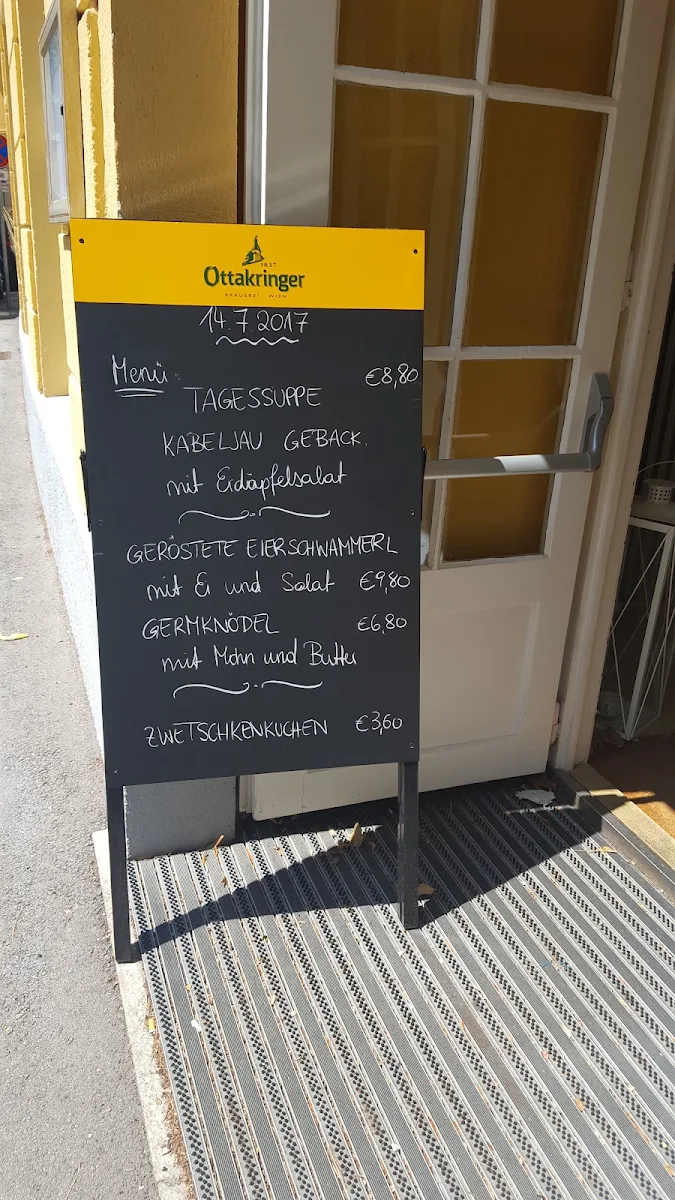 1837
Ottakringer
BRAUEREI · WIEN
14.7.2017
Menü: €8,80
TAGESSUPPE
KABELJAU GEBACK.
mit Erdäpfelsalat
GERÖSTETE EIERSCHWAMMERL
mit Ei und Salat €9,80
GERMKNÖDEL €6,80
mit Mohn und Butter
ZWETSCHKENKUCHEN €3,60